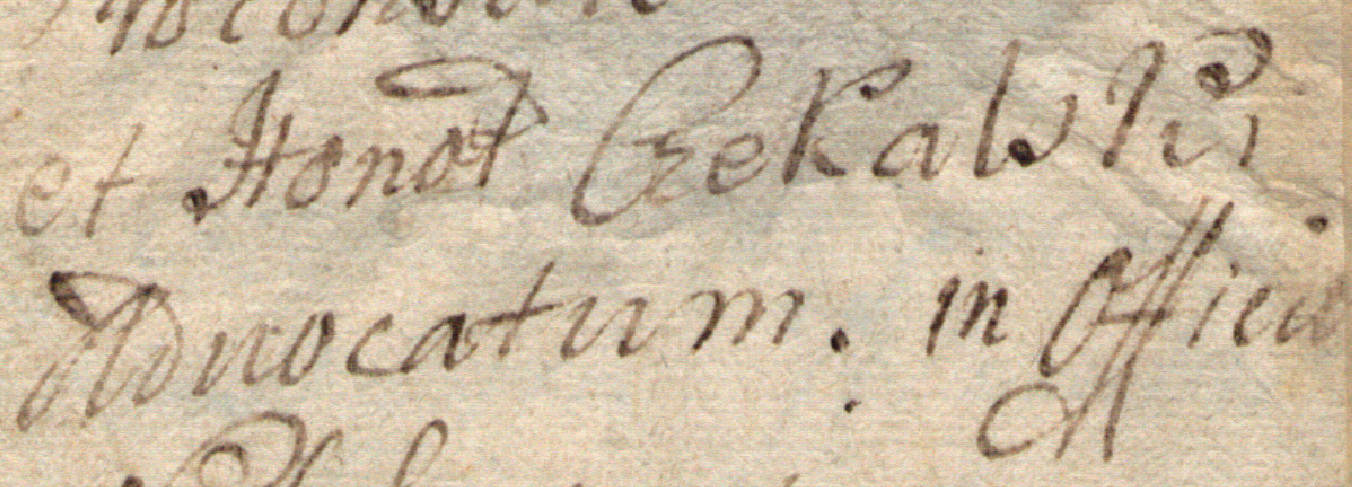 et Honol Czekalski
Aduocatum. in Officio